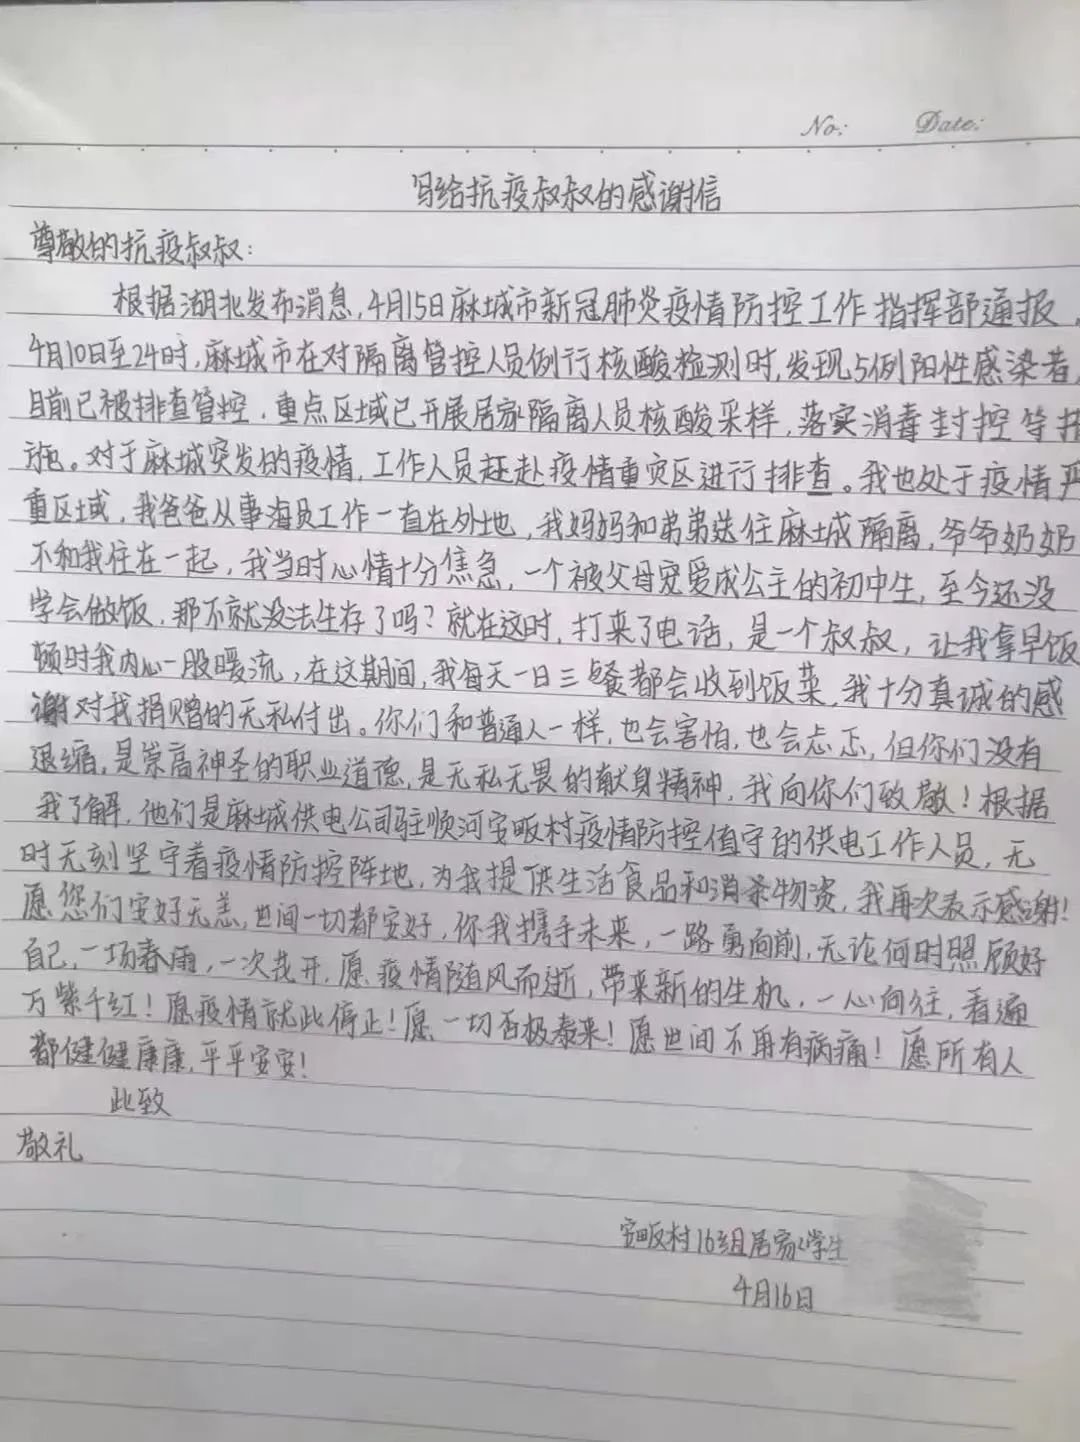 No: Date:
写给抗疫叔叔的感谢信
尊敬的抗疫叔叔:
根据湖北发布消息,4月15日麻城市新冠肺炎疫情防控工作指挥部通报,
4月10日至24时,麻城市在对隔离管控人员例行核酸检测时,发现5例阳性感染者,
目前已被排查管控.重点区域已开展居家隔离人员核酸采样,落实消毒封控等措
施。对于麻城突发的疫情,工作人员赶赴疫情重灾区进行排查。我也处于疫情严
重区域,我爸爸从事海员工作一直在外地,我妈妈和弟弟送住麻城隔离,爷爷奶奶
不和我住在一起,我当时心情十分焦急,一个被父母宠爱成公主的初中生,至今还没
学会做饭,那不就没法生存了吗?就在这时,打来了电话,是一个叔叔,让我拿早饭
顿时我内心一股暖流,在这期间,我每天一日三餐都会收到饭菜,我十分真诚的感
谢对我捐赠的无私付出。你们和普通人一样,也会害怕,也会忐忑,但你们没有
退缩,是崇高神圣的职业道德,是无私无畏的献身精神,我向你们致敬!根据
我了解,他们是麻城供电公司驻顺河安畈村疫情防控值守的供电工作人员,无
时无刻坚守着疫情防控阵地,为我提供生活食品和消杀物资,我再次表示感谢!
愿您们安好无恙,世间一切都安好,你我携手未来,一路勇向前,无论何时照顾好
自己,一场春雨,一次花开,愿疫情随风而逝,带来新的生机,一心向往,看遍
万紫千红!愿疫情就此停止!愿一切否极泰来!愿世间不再有病痛!愿所有人
都健健康康,平平安安!
此致
敬礼
安畈村16组居家学生
4月16日